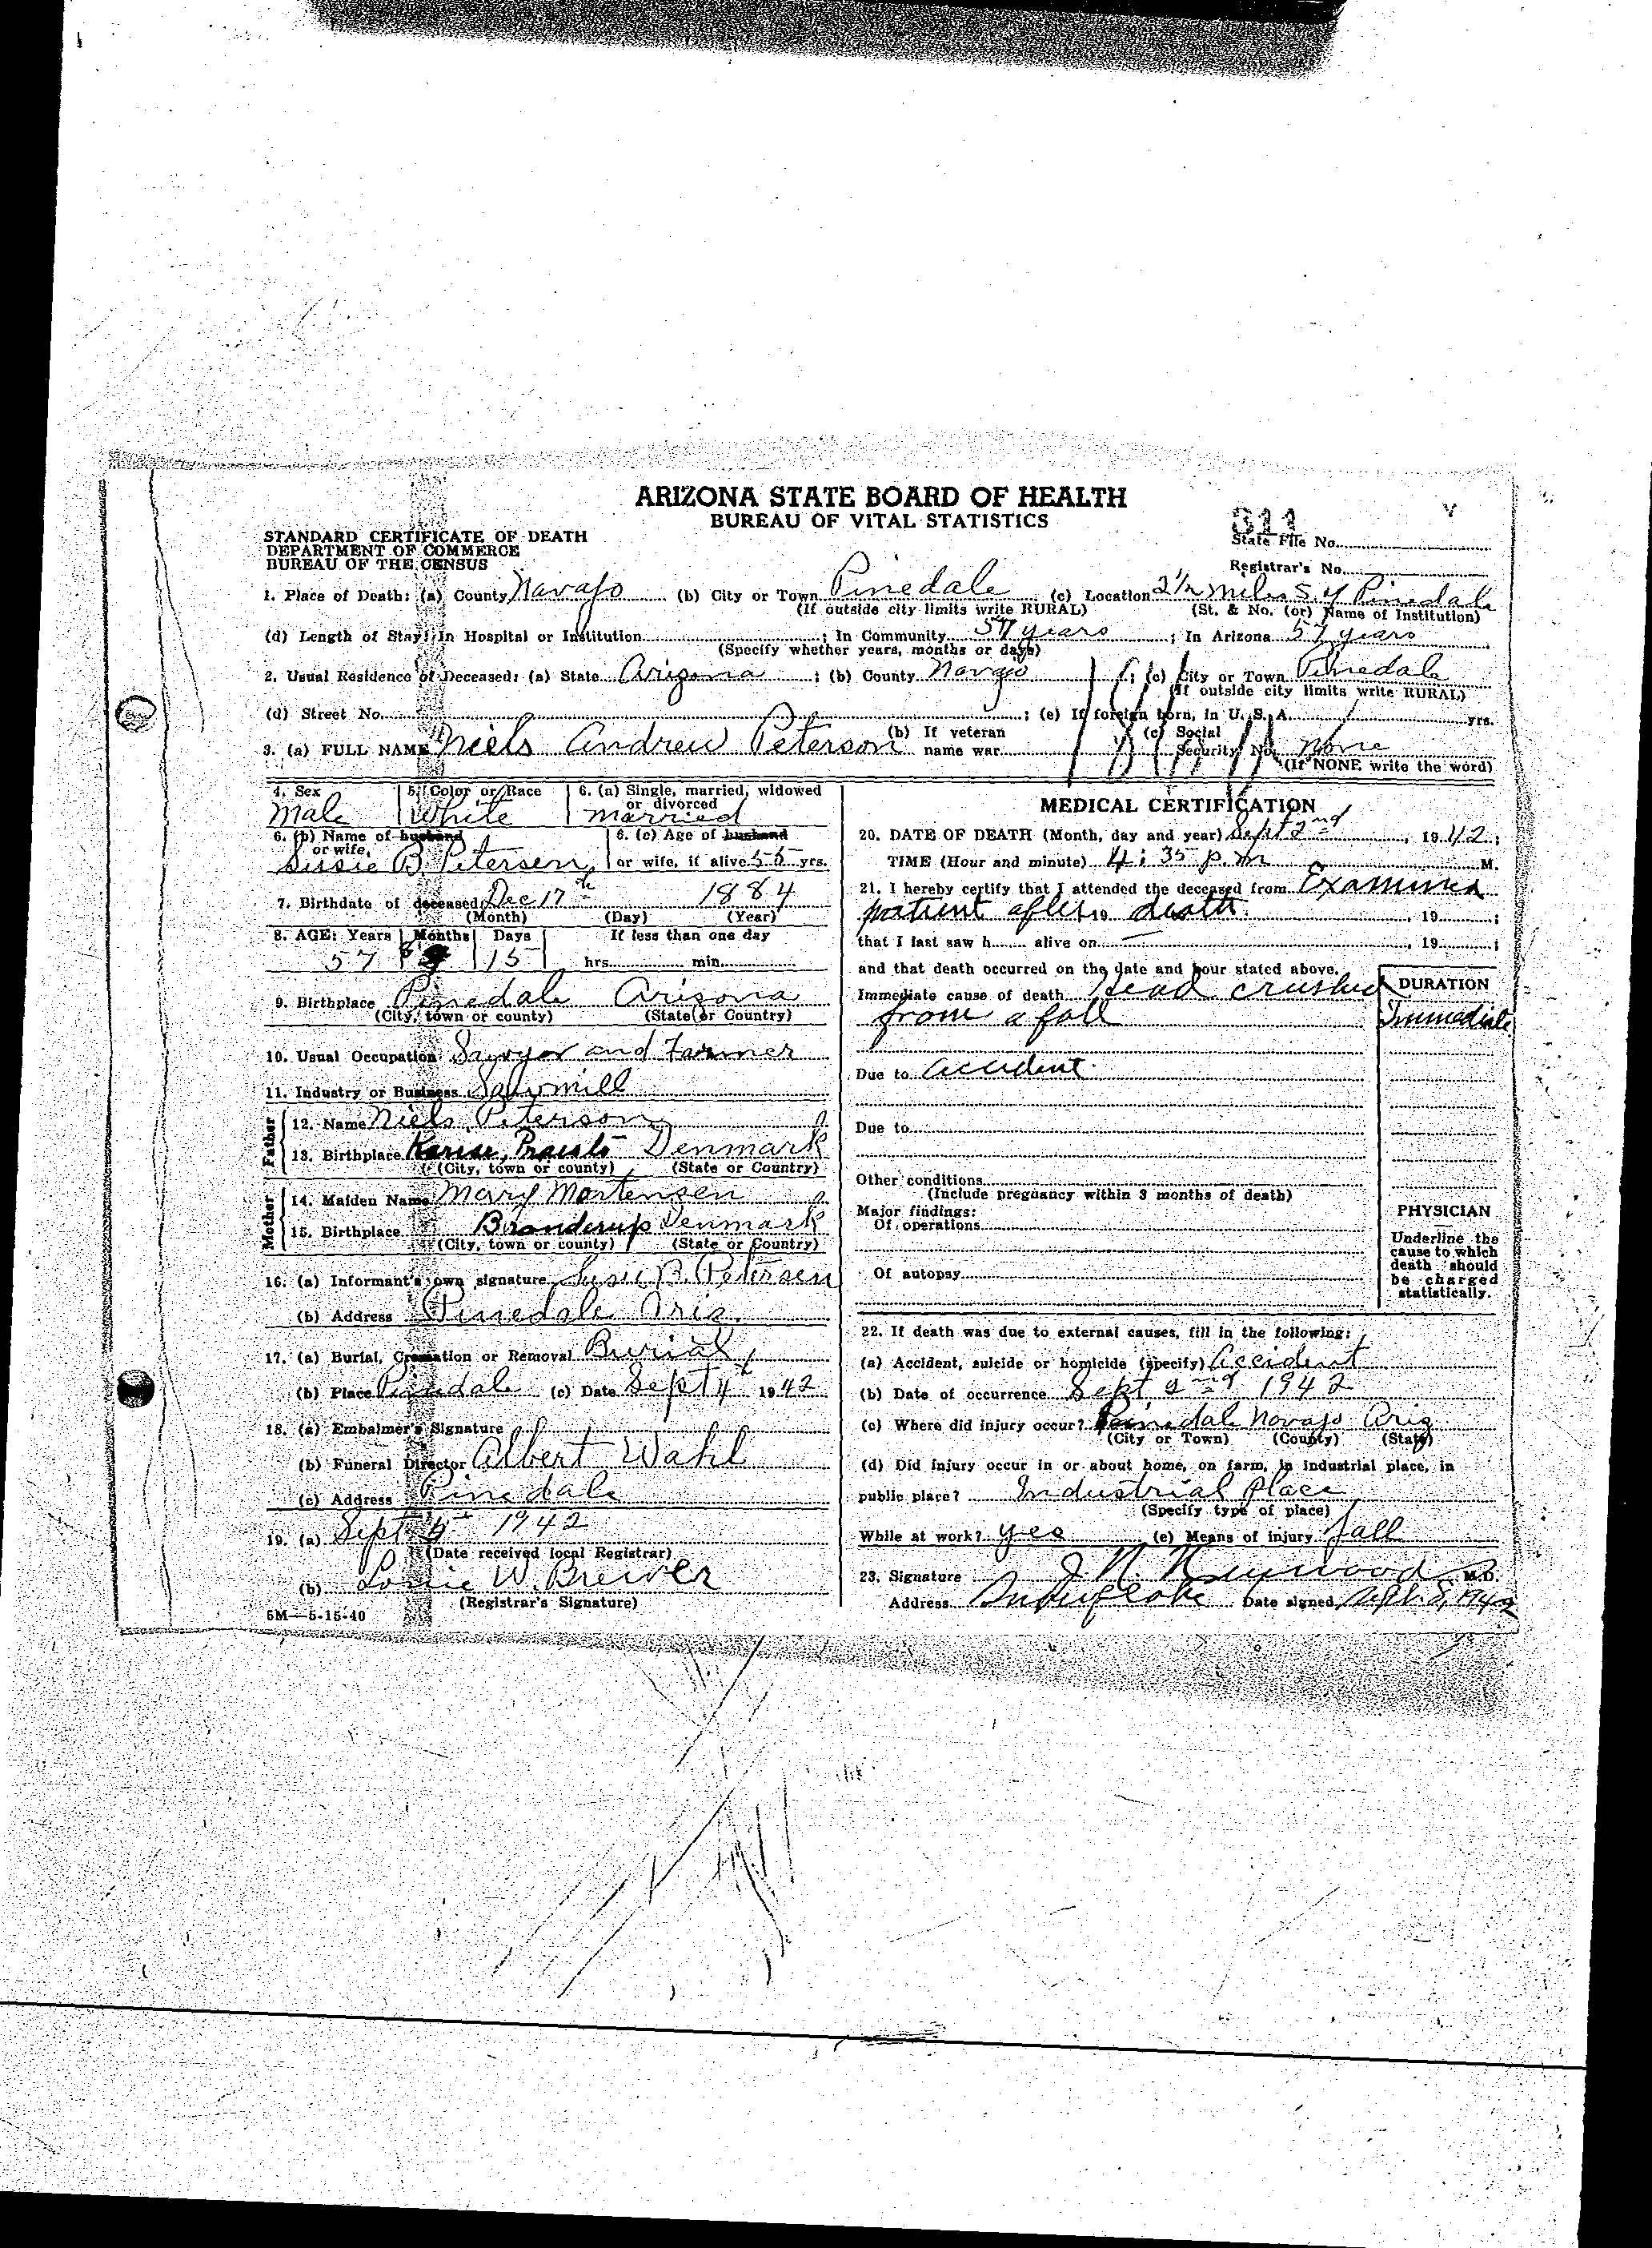 ARIZONA STATE BOARD OF HEALTH
BUREAU OF VITAL STATISTICS
STANDARD CERTIFICATE OF DEATH
DEPARTMENT OF COMMERCE
BUREAU OF THE CENSUS
311
State File No.
Registrar's No.
1. Place of Death: (a) County Navajo (b) City or Town Pinedale (c) Location 2½ miles S. of Pinedale
(If outside city limits write RURAL) (St. & No. (or) Name of Institution)
(d) Length of Stay: In Hospital or Institution ; In Community 57 years ; In Arizona 57 years
(Specify whether years, months or days)
2. Usual Residence of Deceased: (a) State Arizona ; (b) County Navajo ; (c) City or Town Pinedale
(If outside city limits write RURAL)
(d) Street No. ; (e) If foreign born, in U. S. A. yrs.
3. (a) FULL NAME Niels Andrew Peterson (b) If veteran name war (c) Social Security No. None
(If NONE write the word)
4. Sex Male
5. Color or Race White
6. (a) Single, married, widowed or divorced married
6. (b) Name of husband or wife, Sussie B. Petersen
6. (c) Age of husband or wife, if alive 55 yrs.
7. Birthdate of deceased Dec 17th 1884
(Month) (Day) (Year)
8. AGE: Years Months Days If less than one day
57 8 15 hrs. min.
9. Birthplace Pinedale Arizona
(City, town or county) (State or Country)
10. Usual Occupation Sawyer and Farmer
11. Industry or Business Sawmill
Father
12. Name Niels Peterson
13. Birthplace Karise, Praesto Denmark
(City, town or county) (State or Country)
Mother
14. Maiden Name Mary Mortensen
15. Birthplace Bronderup Denmark
(City, town or county) (State or Country)
16. (a) Informant's own signature Susie B. Petersen
(b) Address Pinedale Ariz.
17. (a) Burial, Cremation or Removal Burial
(b) Place Pinedale (c) Date Sept 4 1942
18. (a) Embalmer's Signature
(b) Funeral Director Albert Wahl
(c) Address Pinedale
19. (a) Sept 1942
(Date received local Registrar)
(b) W. Brewer
(Registrar's Signature)
5M—5-15-40
MEDICAL CERTIFICATION
20. DATE OF DEATH (Month, day and year) Sept 2nd, 1942;
TIME (Hour and minute) 4:35 p.m M.
21. I hereby certify that I attended the deceased from Examined
patient after 19 death , 19 ;
that I last saw h alive on , 19 ;
and that death occurred on the date and hour stated above.
Immediate cause of death Head crushed
from a fall
DURATION
Immediate
Due to Accident
Due to
Other conditions
(Include pregnancy within 3 months of death)
Major findings:
Of operations
Of autopsy
PHYSICIAN
Underline the
cause to which
death should
be charged
statistically.
22. If death was due to external causes, fill in the following:
(a) Accident, suicide or homicide (specify) Accident
(b) Date of occurrence Sept 2nd 1942
(c) Where did injury occur? Pinedale Navajo Ariz
(City or Town) (County) (State)
(d) Did injury occur in or about home, on farm, in industrial place, in
public place? Industrial Place
(Specify type of place)
While at work? yes (e) Means of injury fall
23. Signature J. N. M.D.
Address Date signed Sept. 8, 1942